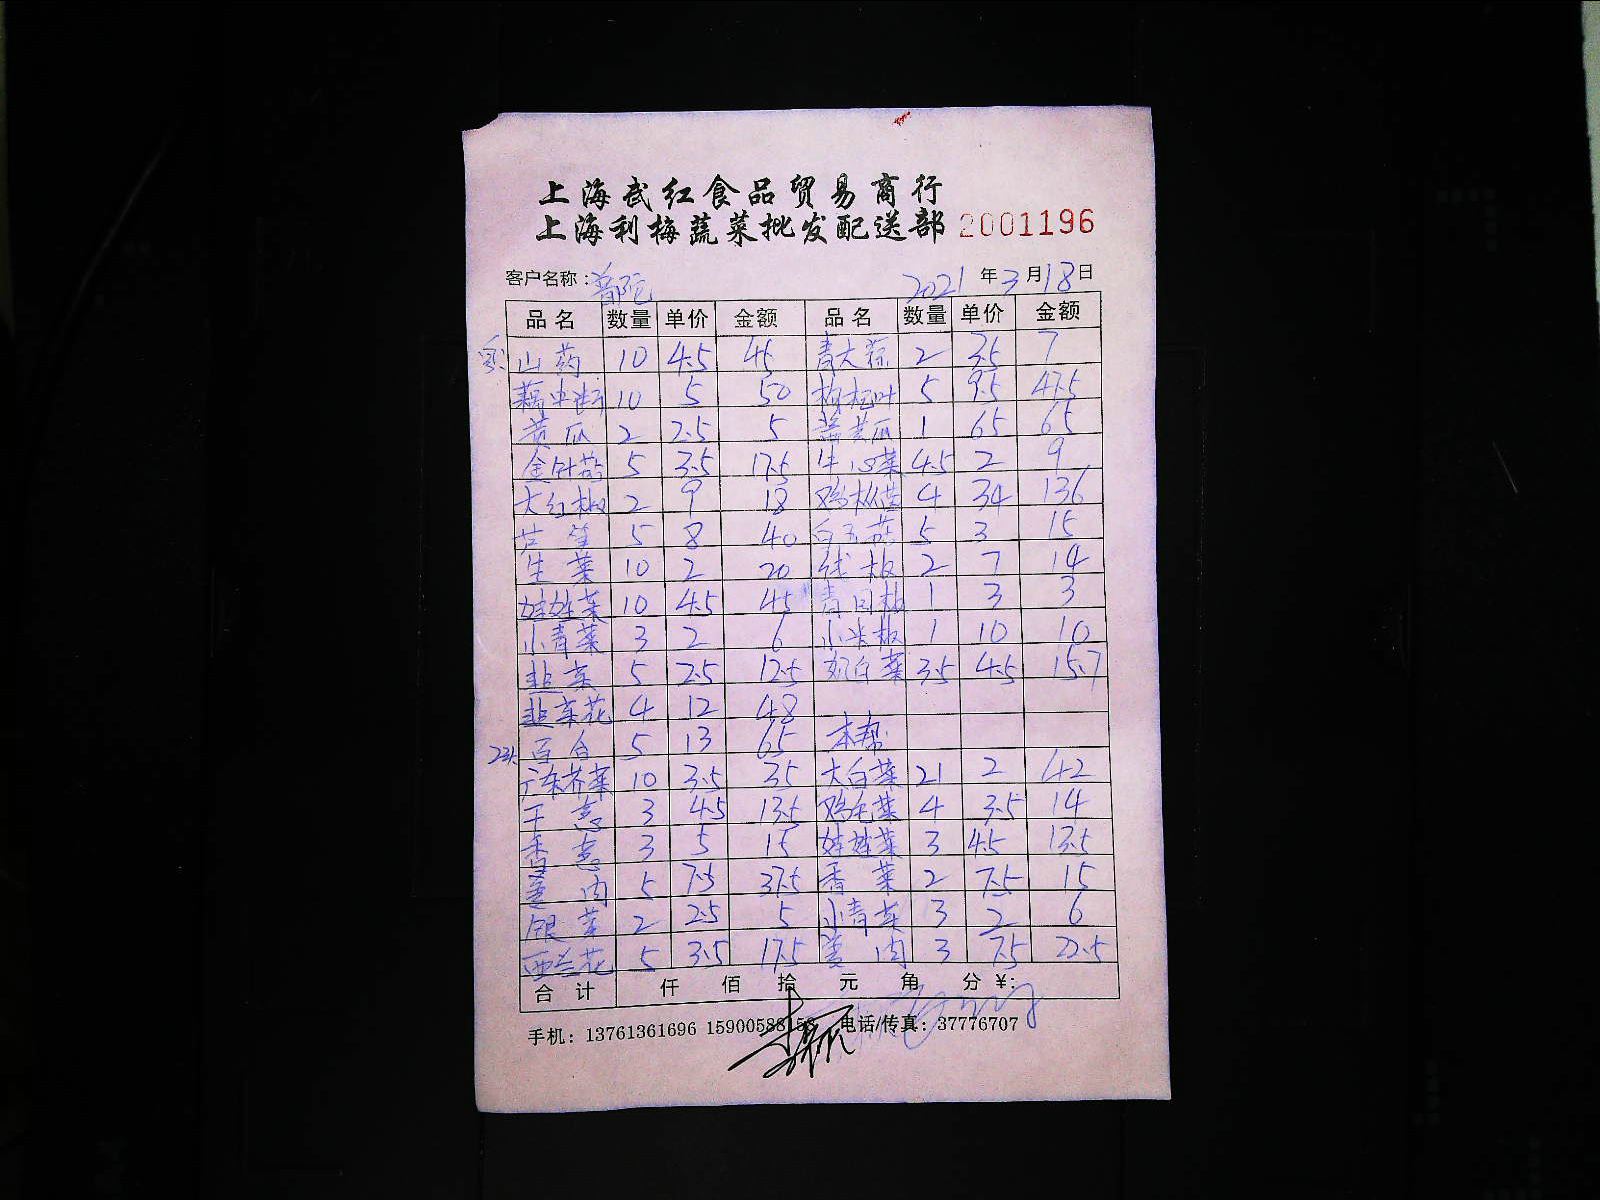 上海武红食品贸易商行
上海利梅蔬菜批发配送部 2001196
客户名称：普陀 2021年3月18日
品名 数量 单价 金额 品名 数量 单价 金额
山药 10 4.5 45 青大蒜 2 3.5 7
藕中段 10 5 50 枸杞叶 5 9.5 47.5
黄瓜 2 2.5 5 黄瓜 1 65 65
金针菇 5 3.5 17.5 牛心菜 4.5 2 9
大红椒 2 9 18 鸡枞菇 4 34 136
芦笋 5 8 40 白玉菇 5 3 15
生菜 10 2 20 线椒 2 7 14
娃娃菜 10 4.5 45 青园椒 1 3 3
小青菜 3 2 6 小米椒 1 10 10
韭菜 5 2.5 12.5 奶白菜 3.5 4.5 15.7
韭菜花 4 12 48
百合 5 13 65 本帮
广东芥菜 10 3.5 35 大白菜 21 2 42
干葱 3 4.5 13.5 鸡毛菜 4 3.5 14
香葱 3 5 15 娃娃菜 3 4.5 13.5
姜肉 5 7.5 37.5 香菜 2 7.5 15
银芽 2 2.5 5 小青菜 3 2 6
西兰花 5 3.5 17.5 姜肉 3 7.5 22.5
合计 仟 佰 拾 元 角 分 ¥:
手机：13761361696 15900588158 电话/传真：37776707